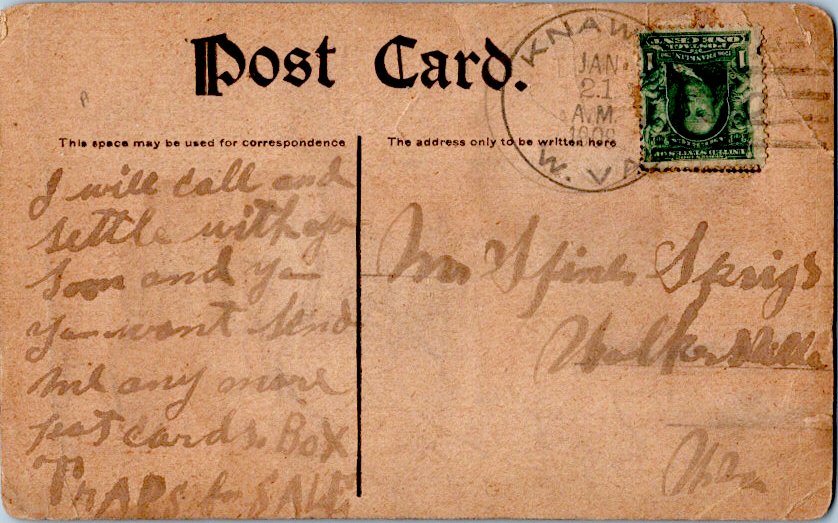 Post Card.
KNAWL
JAN
21
A.M.
W. VA.
This space may be used for correspondence
The address only to be written here
I will call and
settle with you
soon and you
you want send
me any more
post cards. Box
TrAPS for SALE
Mr Sprigs
Walkersville
W.Va